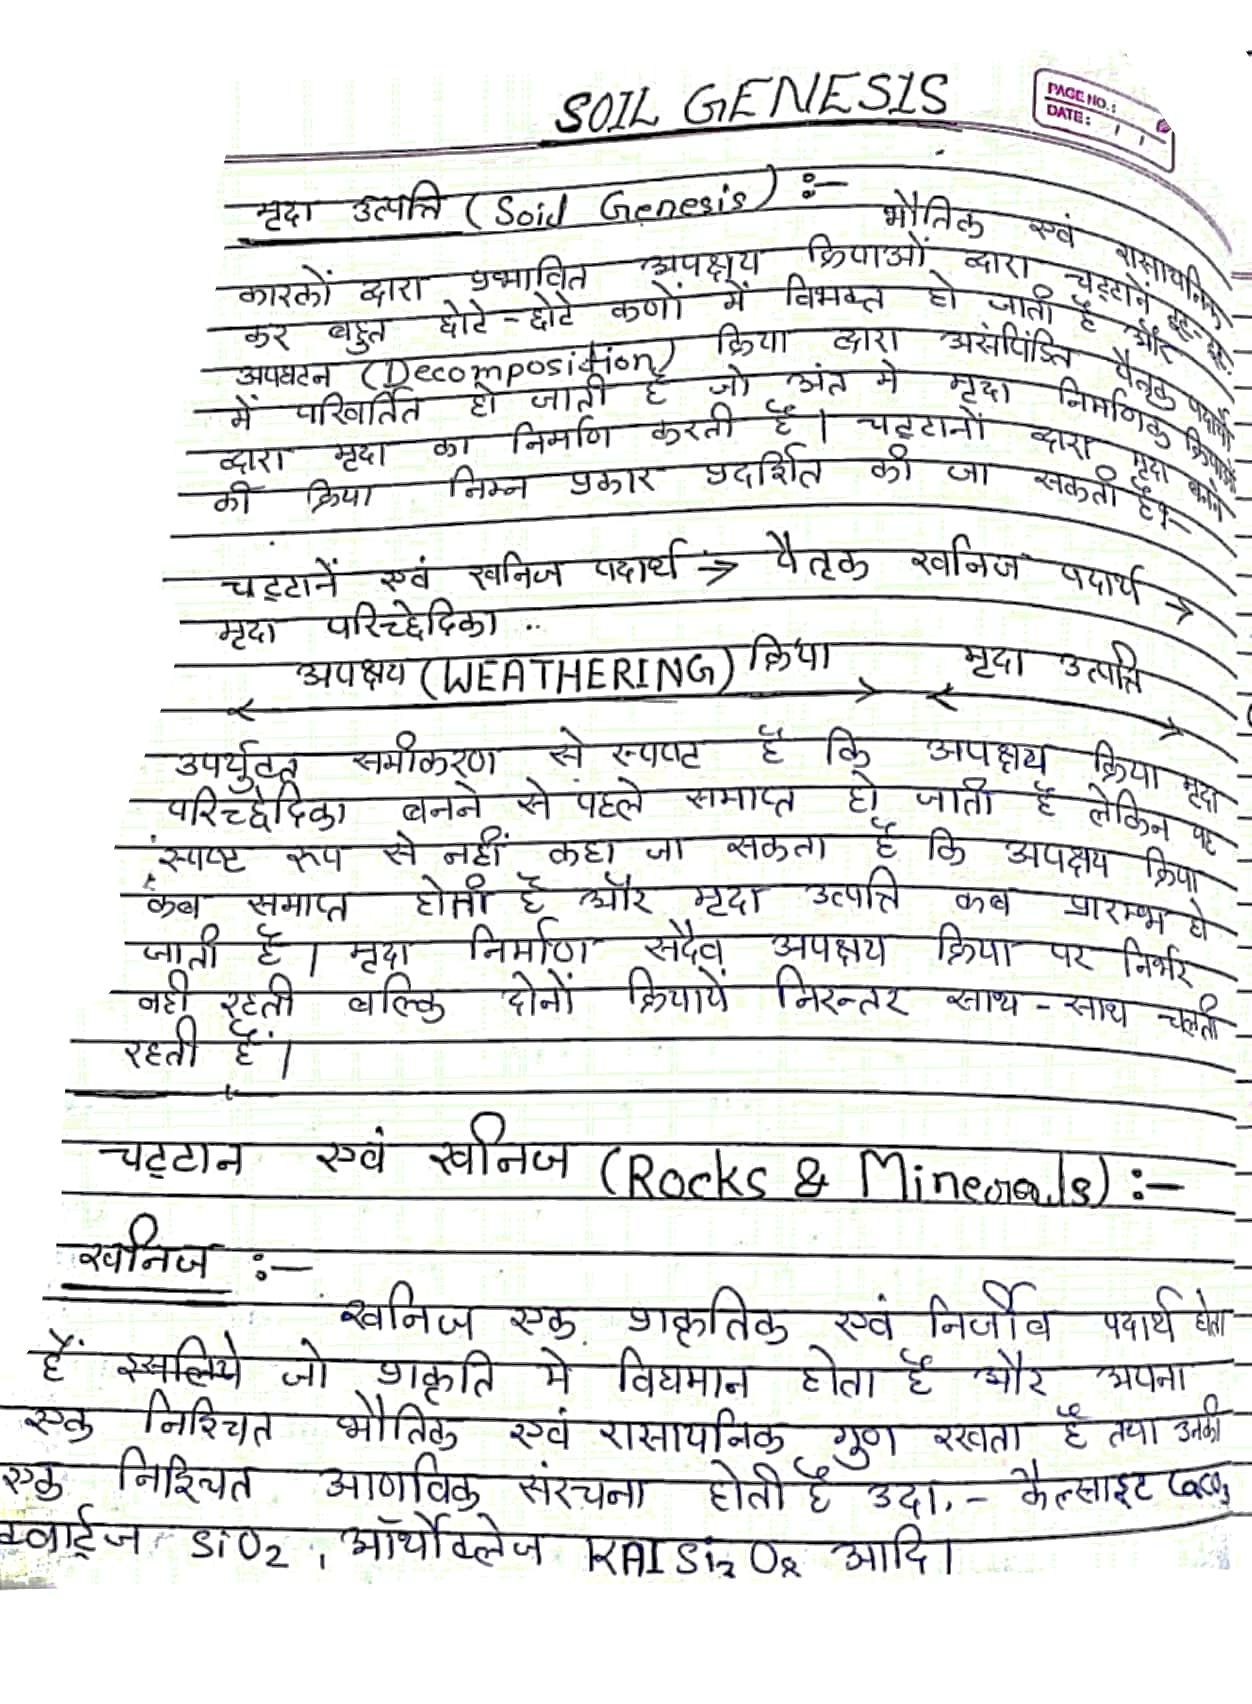 SOIL GENESIS
PAGE NO.:
DATE: / /
मृदा उत्पत्ति (Soil Genesis) :-
भौतिक एवं रासायनिक
कारकों द्वारा प्रभावित अपक्षय क्रियाओं द्वारा चट्टानें टूट-टूट
कर बहुत छोटे-छोटे कणों में विभक्त हो जाती है और
अपघटन (Decomposition) क्रिया द्वारा असंपिंडित पैतृक पदार्थो
में परिवर्तित हो जाती है जो अंत मे मृदा निर्माणक क्रियाओं
द्वारा मृदा का निर्माण करती है। चट्टानों द्वारा मृदा बनने
की क्रिया निम्न प्रकार प्रदर्शित की जा सकती है:-
चट्टानें एवं खनिज पदार्थ → पैतृक खनिज पदार्थ →
मृदा परिच्छेदिका ..
अपक्षय (WEATHERING) क्रिया मृदा उत्पत्ति
उपर्युक्त समीकरण से स्पष्ट है कि अपक्षय क्रिया मृदा
परिच्छेदिका बनने से पहले समाप्त हो जाती है लेकिन यह
स्पष्ट रूप से नहीं कहा जा सकता है कि अपक्षय क्रिया
कब समाप्त होती है और मृदा उत्पत्ति कब प्रारम्भ हो
जाती है। मृदा निर्माण सदैव अपक्षय क्रिया पर निर्भर
नही रहती बल्कि दोनों क्रियायें निरन्तर साथ-साथ चलती
रहती हैं।
चट्टान एवं खनिज (Rocks & Minerals) :-
खनिज :-
खनिज एक प्राकृतिक एवं निर्जीव पदार्थ होता
हैं इसलिये जो प्राकृति मे विद्यमान होता है और अपना
एक निश्चित भौतिक एवं रासायनिक गुण रखता है तथा उनकी
एक निश्चित आणविक संरचना होती है उदा.- कैल्साइट CaCO3
क्वार्ट्ज SiO2, ऑर्थोक्लेज KAlSi3O8 आदि।